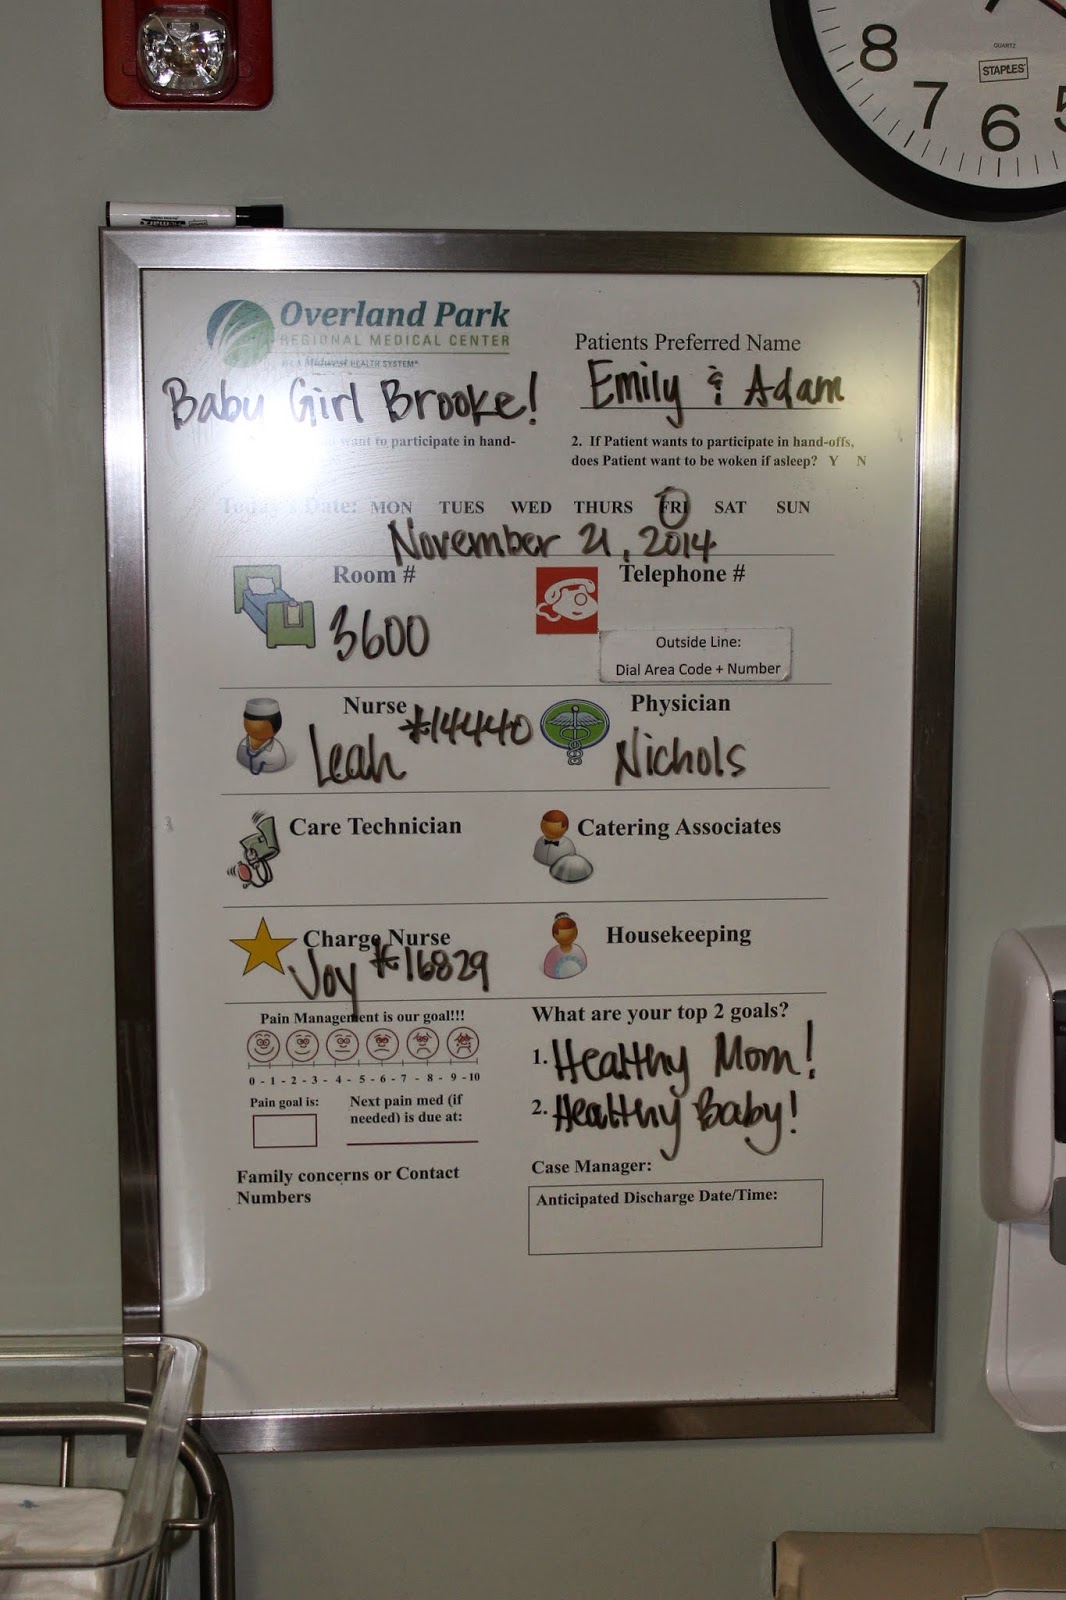 8
7
6
5
QUARTZ
STAPLES
Overland Park
REGIONAL MEDICAL CENTER
Midwest HEALTH SYSTEM
Patients Preferred Name
Baby Girl Brooke!
Emily & Adam
want to participate in hand-
2. If Patient wants to participate in hand-offs,
does Patient want to be woken if asleep? Y N
Today's Date: MON TUES WED THURS FRI SAT SUN
November 21, 2014
Room #
3600
Telephone #
Outside Line:
Dial Area Code + Number
Nurse
Leah *14440
Physician
Nichols
Care Technician
Catering Associates
Charge Nurse
Joy *16829
Housekeeping
Pain Management is our goal!!!
0 - 1 - 2 - 3 - 4 - 5 - 6 - 7 - 8 - 9 - 10
Pain goal is:
Next pain med (if
needed) is due at:
What are your top 2 goals?
1. Healthy Mom!
2. Healthy Baby!
Family concerns or Contact
Numbers
Case Manager:
Anticipated Discharge Date/Time: